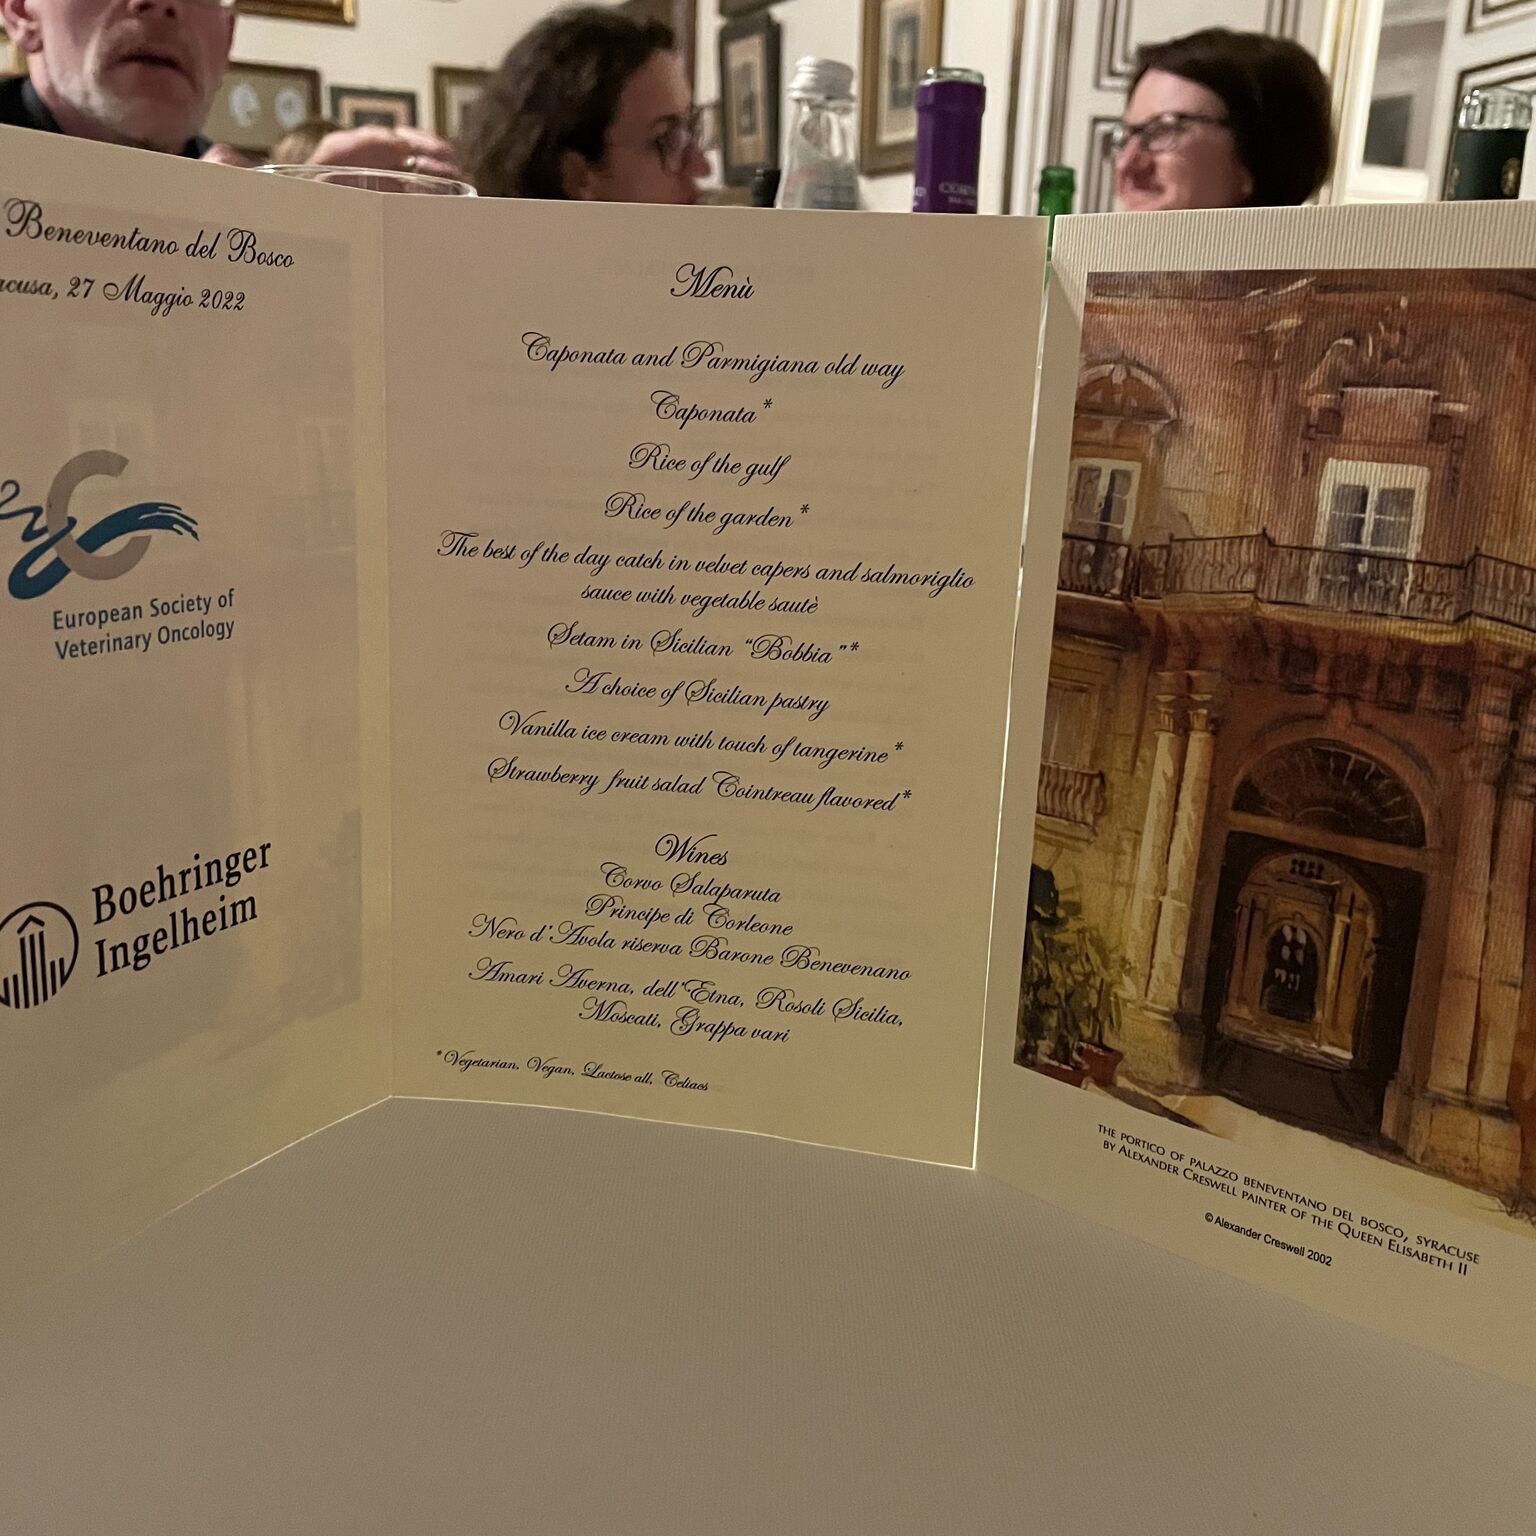 Beneventano del Bosco
27 Maggio 2022
European Society of
Veterinary Oncology
Boehringer
Ingelheim
Menù
Caponata and Parmigiana old way
Caponata*
Rice of the gulf
Rice of the garden*
The best of the day catch in velvet capers and salmoriglio
sauce with vegetable sautè
Setam in Sicilian "Bobbia"*
A choice of Sicilian pastry
Vanilla ice cream with touch of tangerine*
Strawberry fruit salad Cointreau flavored*
Wines
Corvo Salaparuta
Principe di Corleone
Nero d'Avola riserva Barone Benevenano
Amari Averna, dell'Etna, Rosoli Sicilia,
Moscati, Grappa vari
*Vegetarian, Vegan, Lactose all, Celiacs
THE PORTICO OF PALAZZO BENEVENTANO DEL BOSCO, SYRACUSE
BY ALEXANDER CRESWELL PAINTER OF THE QUEEN ELISABETH II
© Alexander Creswell 2002